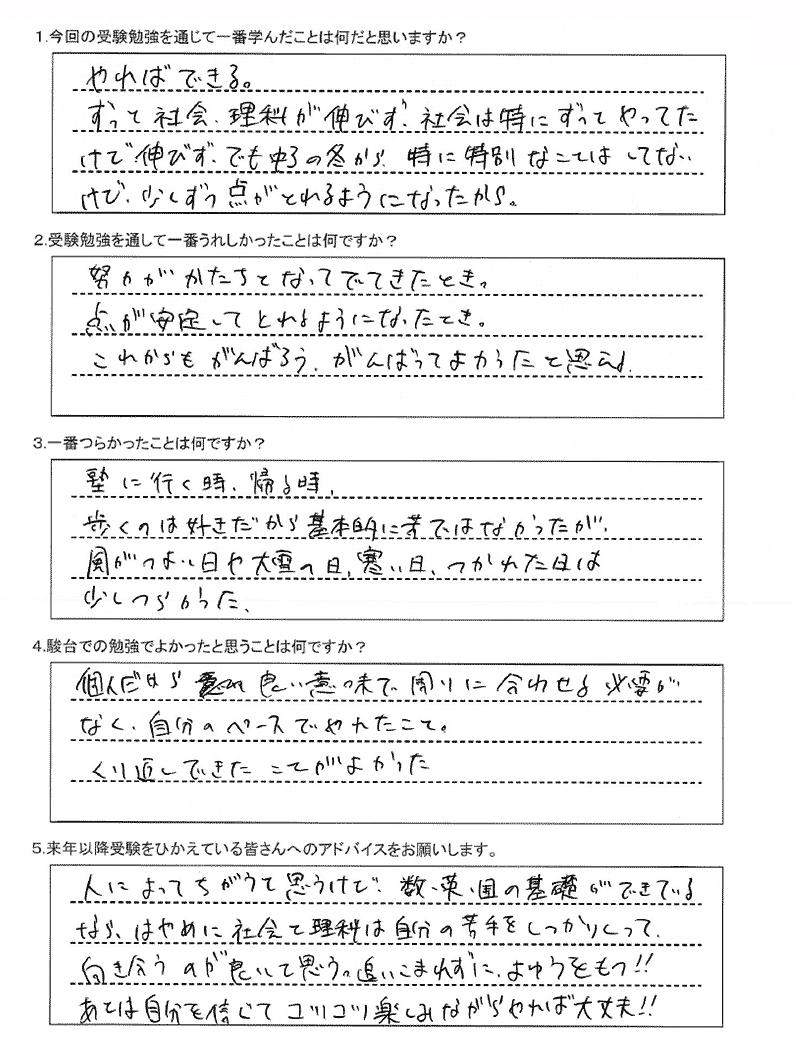 1.今回の受験勉強を通じて一番学んだことは何だと思いますか？
やればできる。
ずっと社会、理科が伸びず、社会は特にずっとやってた
けど伸びず、でも中3の冬から、特に特別なことはしてない
けど、少しずつ点がとれるようになったから。
2.受験勉強を通して一番うれしかったことは何ですか？
努力がかたちとなってでてきたとき。
点が安定してとれるようになったとき。
これからもがんばろう、がんばってよかったと思える。
3.一番つらかったことは何ですか？
塾に行く時、帰る時、
歩くのは好きだから基本的に苦ではなかったが、
風がつよい日や大雪の日、寒い日、つかれた日は
少しつらかった。
4.駿台での勉強でよかったと思うことは何ですか？
個人だから 良い意味で周りに合わせる必要が
なく、自分のペースでやれたこと。
くり返しできたことがよかった
5.来年以降受験をひかえている皆さんへのアドバイスをお願いします。
人によってちがうと思うけど、数・英・国の基礎ができている
なら、はやめに社会と理科は自分の苦手をしっかりしって、
向き合うのが良いと思う。追いこまれずに、よゆうをもつ!!
あとは自分を信じてコツコツ楽しみながらやれば大丈夫!!